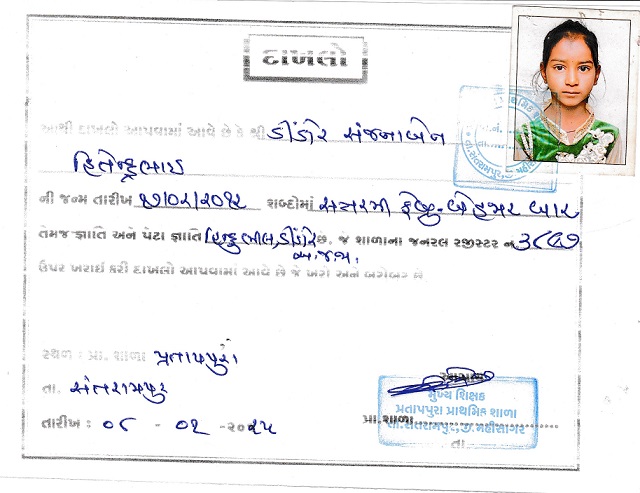 દાખલો
આથી દાખલો આપવામાં આવે છે કે શ્રી ડીંડોર સંજનાબેન
હિતેન્દ્રભાઇ
ની જન્મ તારીખ ૧૭/૦૨/૨૦૧૨ શબ્દોમાં સત્તરમી ફેબ્રુ-બેહજાર બાર
તેમજ જ્ઞાતિ અને પેટા જ્ઞાતિ હિન્દુ ભીલ, ડીંડોર છે. જે શાળાના જનરલ રજીસ્ટર નં
અ.જ.જા.
ઉપર ખરાઈ કરી દાખલો આપવામાં આવે છે જે ખરો અને બરોબર છે
સ્થળ : પ્રા. શાળા પ્રતાપપુરા
તા. સંતરામપુર
તારીખ : ૦૮ - ૦૨ - ૨૦૨૫
મુખ્ય શિક્ષક
પ્રતાપપુરા પ્રાથમિક શાળા
તા.સંતરામપુર, જી.મહીસાગર
પ્રા.શાળા
તા.